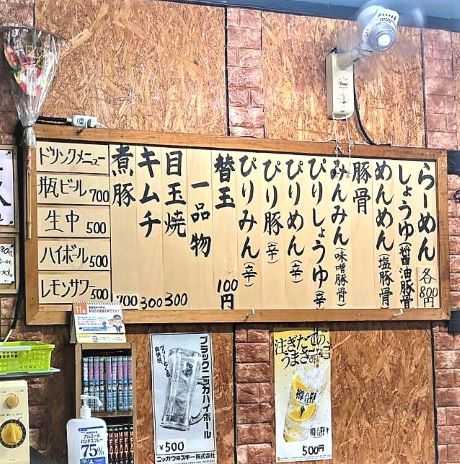 らーめん 各800円
しょうゆ(醤油豚骨)
めんめん(塩豚骨)
豚骨
みんみん(味噌豚骨)
ぴりしょうゆ(辛)
ぴりめん(辛)
ぴり豚(辛)
ぴりみん(辛)
替玉 100円
一品物
目玉焼 300
キムチ 300
煮豚 700
ドリンクメニュー
瓶ビール 700
生中 500
ハイボール 500
レモンサワー 500
ブラックニッカハイボール
¥500
ニッカウヰスキー株式会社
注ぎたて、
うまさ
樽ハイ倶楽部
500円
75%